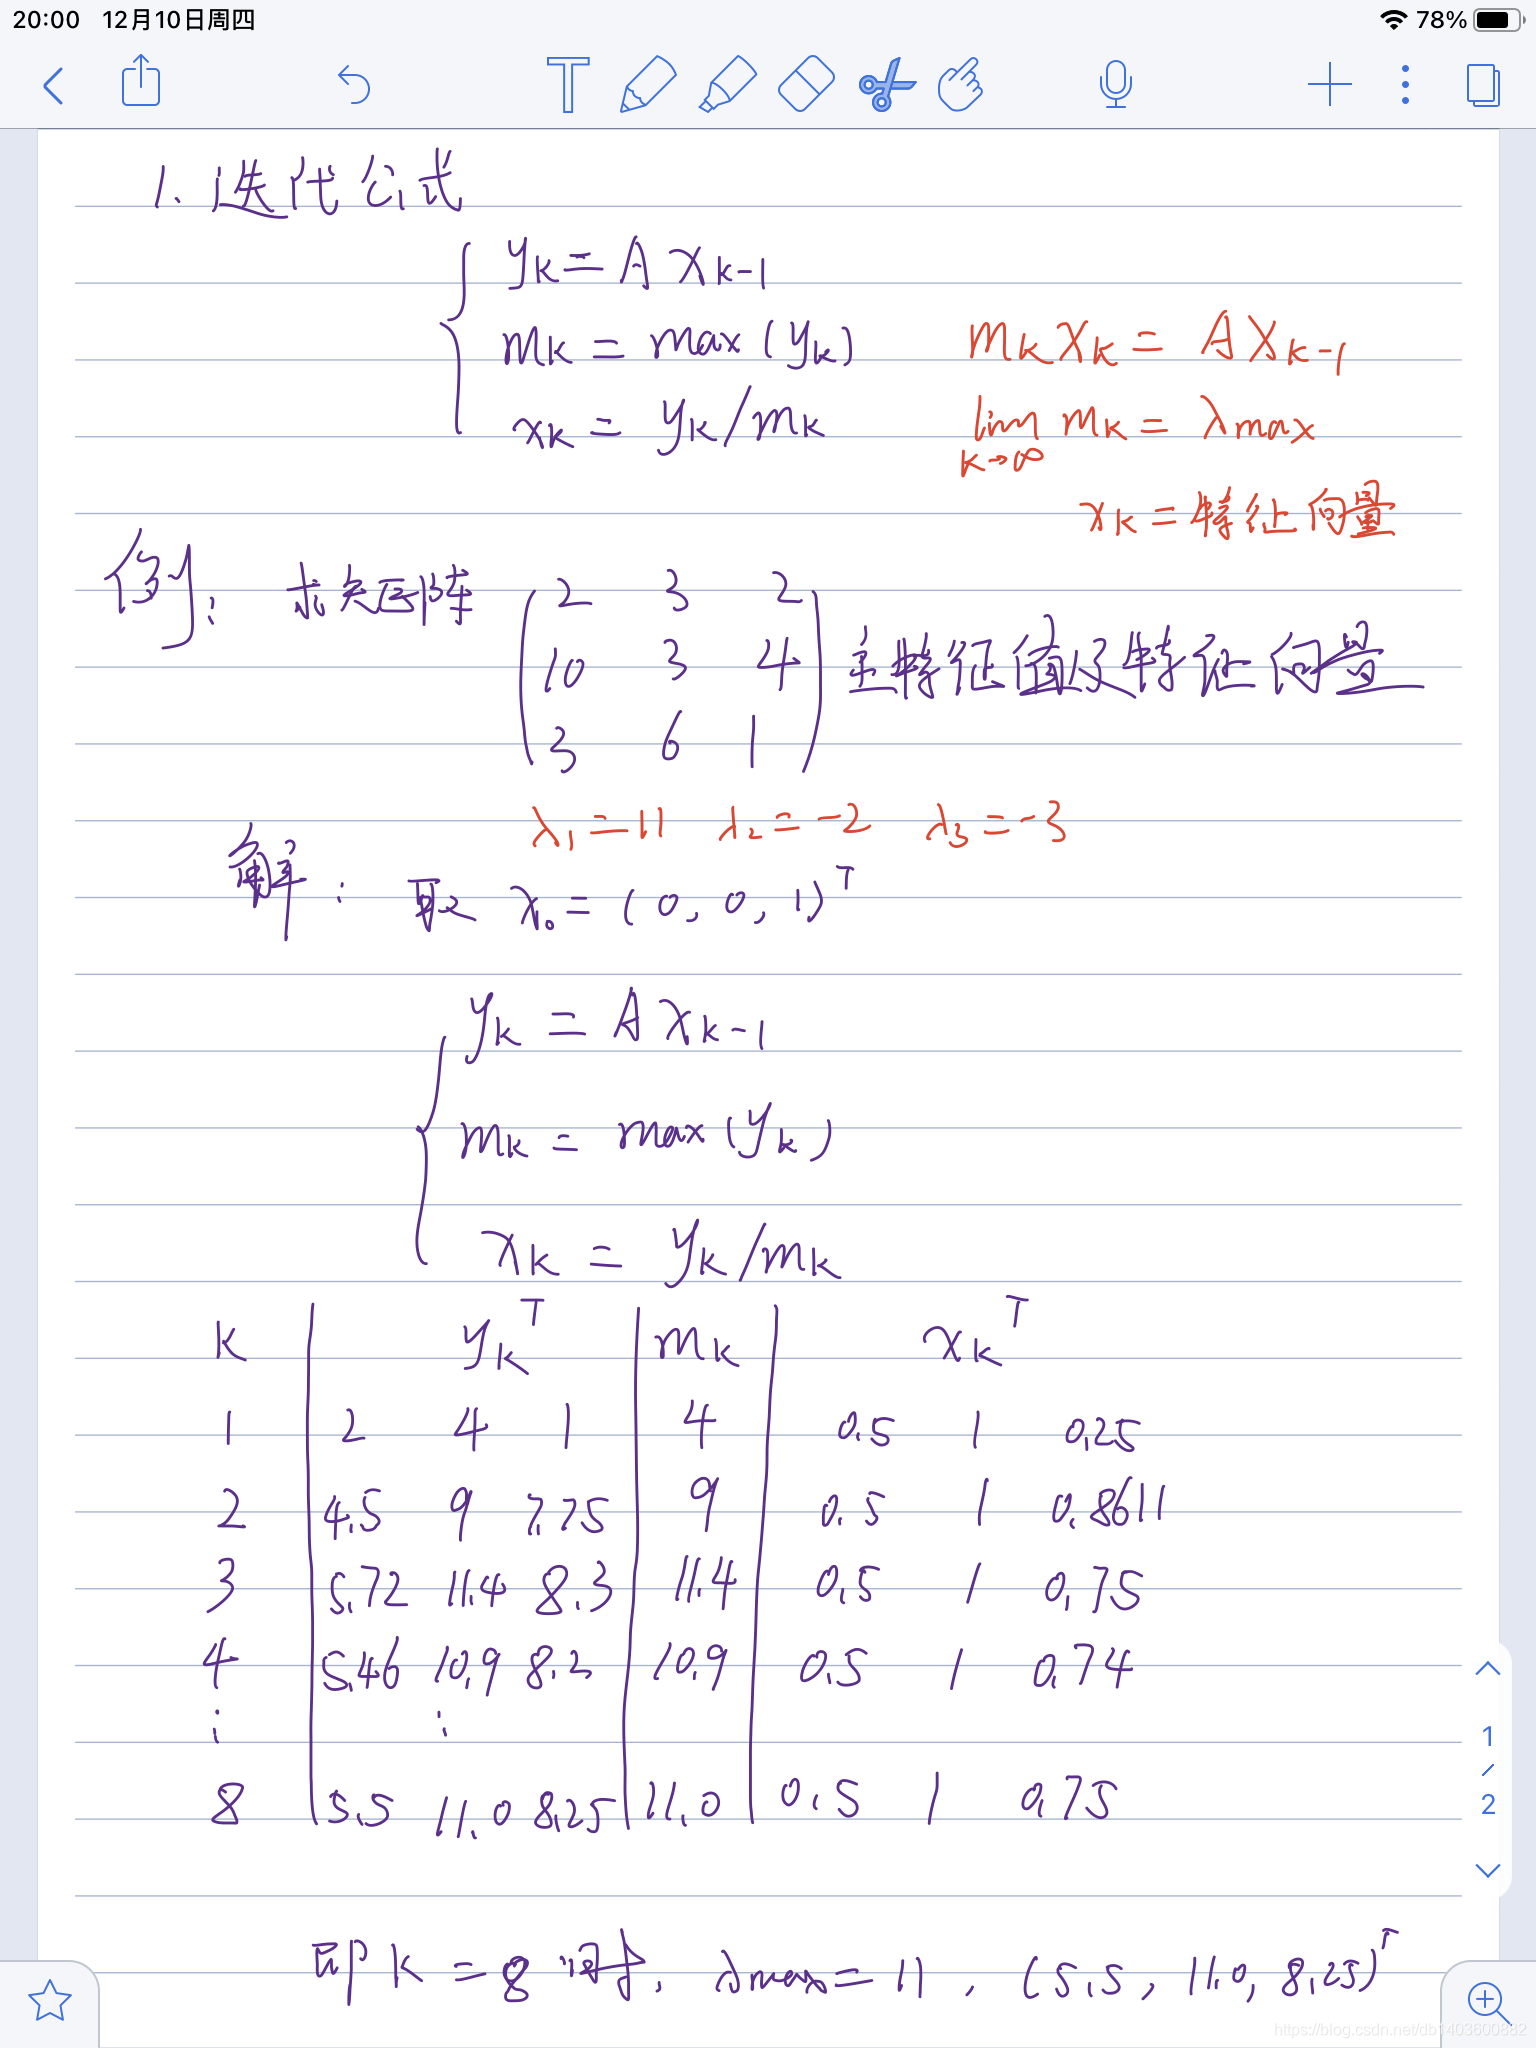 20:00 12月10日周四 78%
1. 迭代公式
yk = A xk-1
mk = max (yk) mk xk = A xk-1
xk = yk/mk lim mk = λmax
k→∞
xk = 特征向量
例: 求矩阵 2 3 2
10 3 4 主特征值及特征向量
3 6 1
λ1 = 11 λ2 = -2 λ3 = -3
解: 取 x0 = (0, 0, 1)T
yk = A xk-1
mk = max (yk)
xk = yk/mk
k ykT mk xkT
1 2 4 1 4 0.5 1 0.25
2 4.5 9 7.75 9 0.5 1 0.8611
3 5.72 11.4 8.3 11.4 0.5 1 0.75
4 5.46 10.9 8.2 10.9 0.5 1 0.74
⋮ ⋮
8 5.5 11.0 8.25 11.0 0.5 1 0.75
即 k = 8 时, λmax = 11, (5.5, 11.0, 8.25)T
1
/
2
https://blog.csdn.net/db1403600882